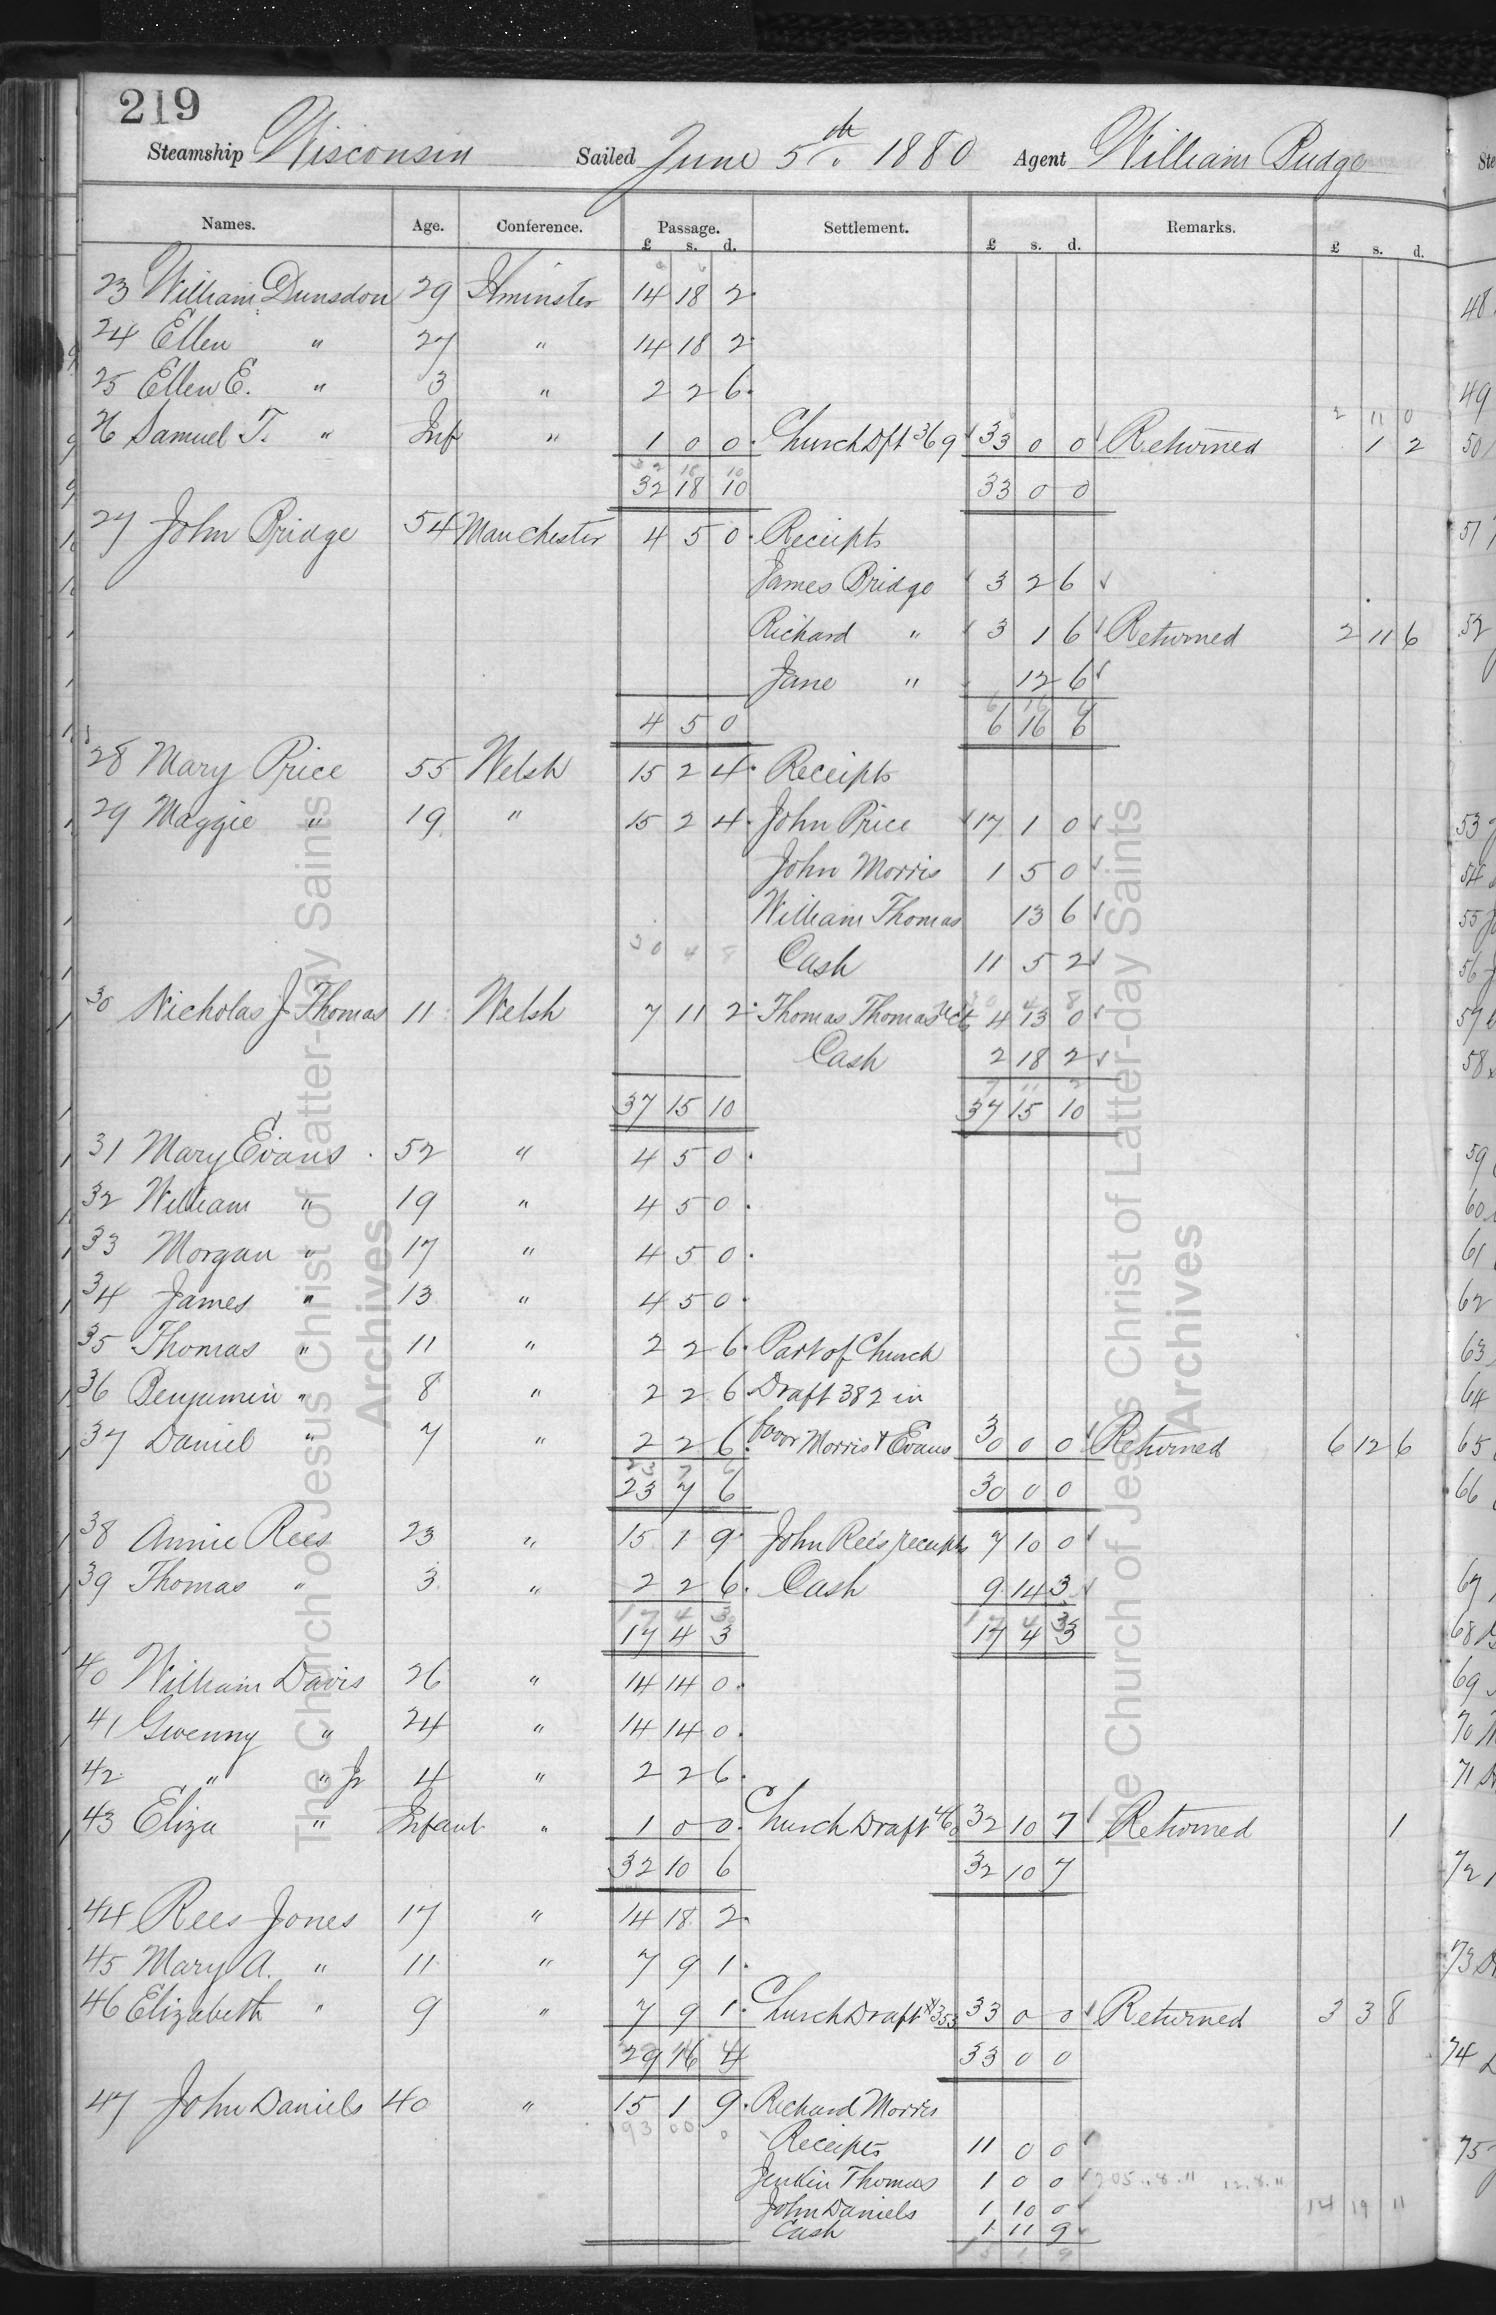 219
Steamship Wisconsin Sailed June 5th 1880 Agent William Budge
Names. Age. Conference. Passage. Settlement. Remarks.
£ s. d. £ s. d. £ s. d.
23 William Dunsdon 29 14 18 2
24 Ellen " 27 " 14 18 2
25 Ellen E. " 3 " 2 2 6
2 11 0
26 Samuel T. " Inf " 1 0 0 Church Dft 369 33 0 0 Returned 1 2
32 18 10
32 18 10 33 0 0
27 John Bridge 54 Manchester 4 5 0 Receipts
James Bridge 3 2 6
Richard " 3 1 6 Returned 2 11 6
Jane " 12 6
6 16 6
4 5 0 6 16 6
28 Mary Price 55 Welsh 15 2 4 Receipts
29 Maggie " 19 " 15 2 4 John Price 17 1 0
John Morris 1 5 0
William Thomas 13 6
30 4 8 Cash 11 5 2
30 4 8
30 Nicholas J Thomas 11 Welsh 7 11 2 Thomas Thomas rct 4 13 0
Cash 2 18 2
7 11 2
37 15 10 37 15 10
31 Mary Evans 52 " 4 5 0
32 William " 19 " 4 5 0
33 Morgan " 17 " 4 5 0
34 James " 13 " 4 5 0
35 Thomas " 11 " 2 2 6 Part of Church
36 Benjamin " 8 " 2 2 6 Draft 382 in
37 Daniel " 7 " 2 2 6 favor Morris & Evans 30 0 0 Returned 6 12 6
23 7 6
23 7 6 30 0 0
38 Annie Rees 23 " 15 1 9 John Rees receipts 7 10 0
39 Thomas " 3 " 2 2 6 Cash 9 14 3
17 4 3 17 4 3
17 4 3 17 4 3
40 William Davis 26 " 14 14 0
41 Gwenny " 24 " 14 14 0
42 " " Jr 4 " 2 2 6
43 Eliza " Infant " 1 0 0 Church Draft 460 32 10 7 Returned 1
32 10 6 32 10 7
44 Rees Jones 17 " 14 18 2
45 Mary A. " 11 " 7 9 1
46 Elizabeth " 9 " 7 9 1 Church Draft #353 33 0 0 Returned 3 3 8
29 16 4 33 0 0
47 John Daniels 40 " 15 1 9 Richard Morris
193 00 0 Receipts 11 0 0
Jenkin Thomas 1 0 0 205 .. 8 .11 12.8.11
John Daniels 1 10 0 14 19 11
Cash 1 11 9
15 1 9
The Church of Jesus Christ of Latter-day Saints
Archives
The Church of Jesus Christ of Latter-day Saints
Archives